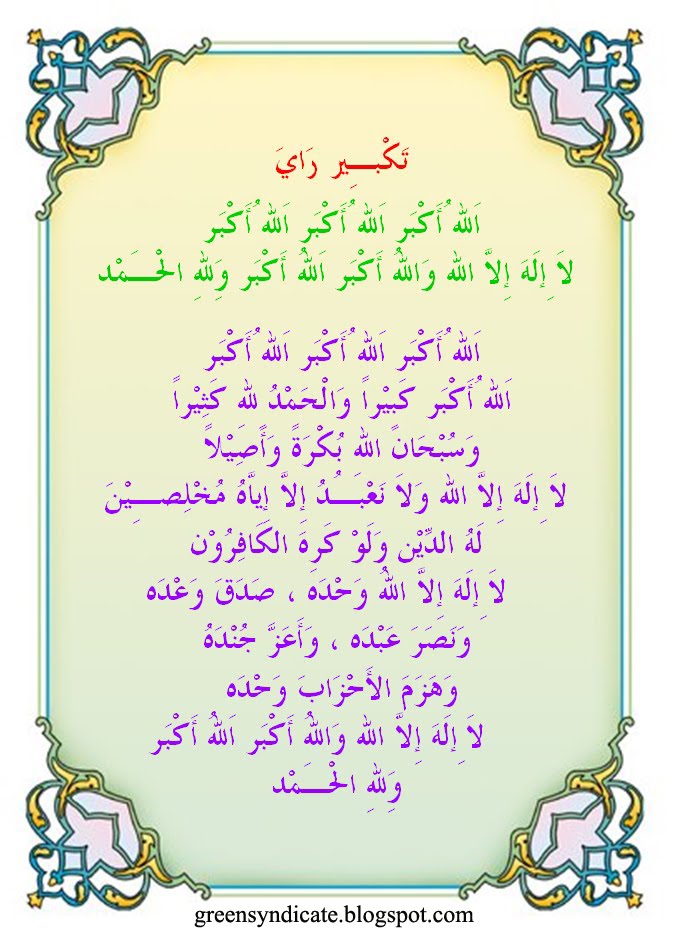 تَكْبِــير رَايَ
اَللهُ أَكْبَر اَللهُ أَكْبَر اَللهُ أَكْبَر
لاَ إِلَهَ إِلاَّ الله وَاللهُ أَكْبَر اَللهُ أَكْبَر وَلِلهِ الْحَــمْد
اَللهُ أَكْبَر اَللهُ أَكْبَر اَللهُ أَكْبَر
اَللهُ أَكْبَر كَبِيْراً وَالْحَمْدُ لله كَثِيْراً
وَسُبْحَانً الله بُكْرَةً وَأَصِيْلاً
لاَ إِلَهَ إِلاَّ الله وَلاَ نَعْبَــدُ إِلاَّ إِياَّهُ مُخْلِصِــيْنَ
لَهُ الدِّيْن وَلَوْ كَرِهَ الكَافِرُوْن
لاَ إِلَهَ إِلاَّ اللهُ وَحْدَه ، صَدَقَ وَعْدَه
وَنَصَرَ عَبْدَه ، وَأَعَزَّ جُنْدَهُ
وَهَزَمَ الأَحْزَابَ وَحْدَه
لاَ إِلَهَ إِلاَّ الله وَاللهُ أَكْبَر اَللهُ أَكْبَر
وَلِلهِ الْحَــمْد
greensyndicate.blogspot.com